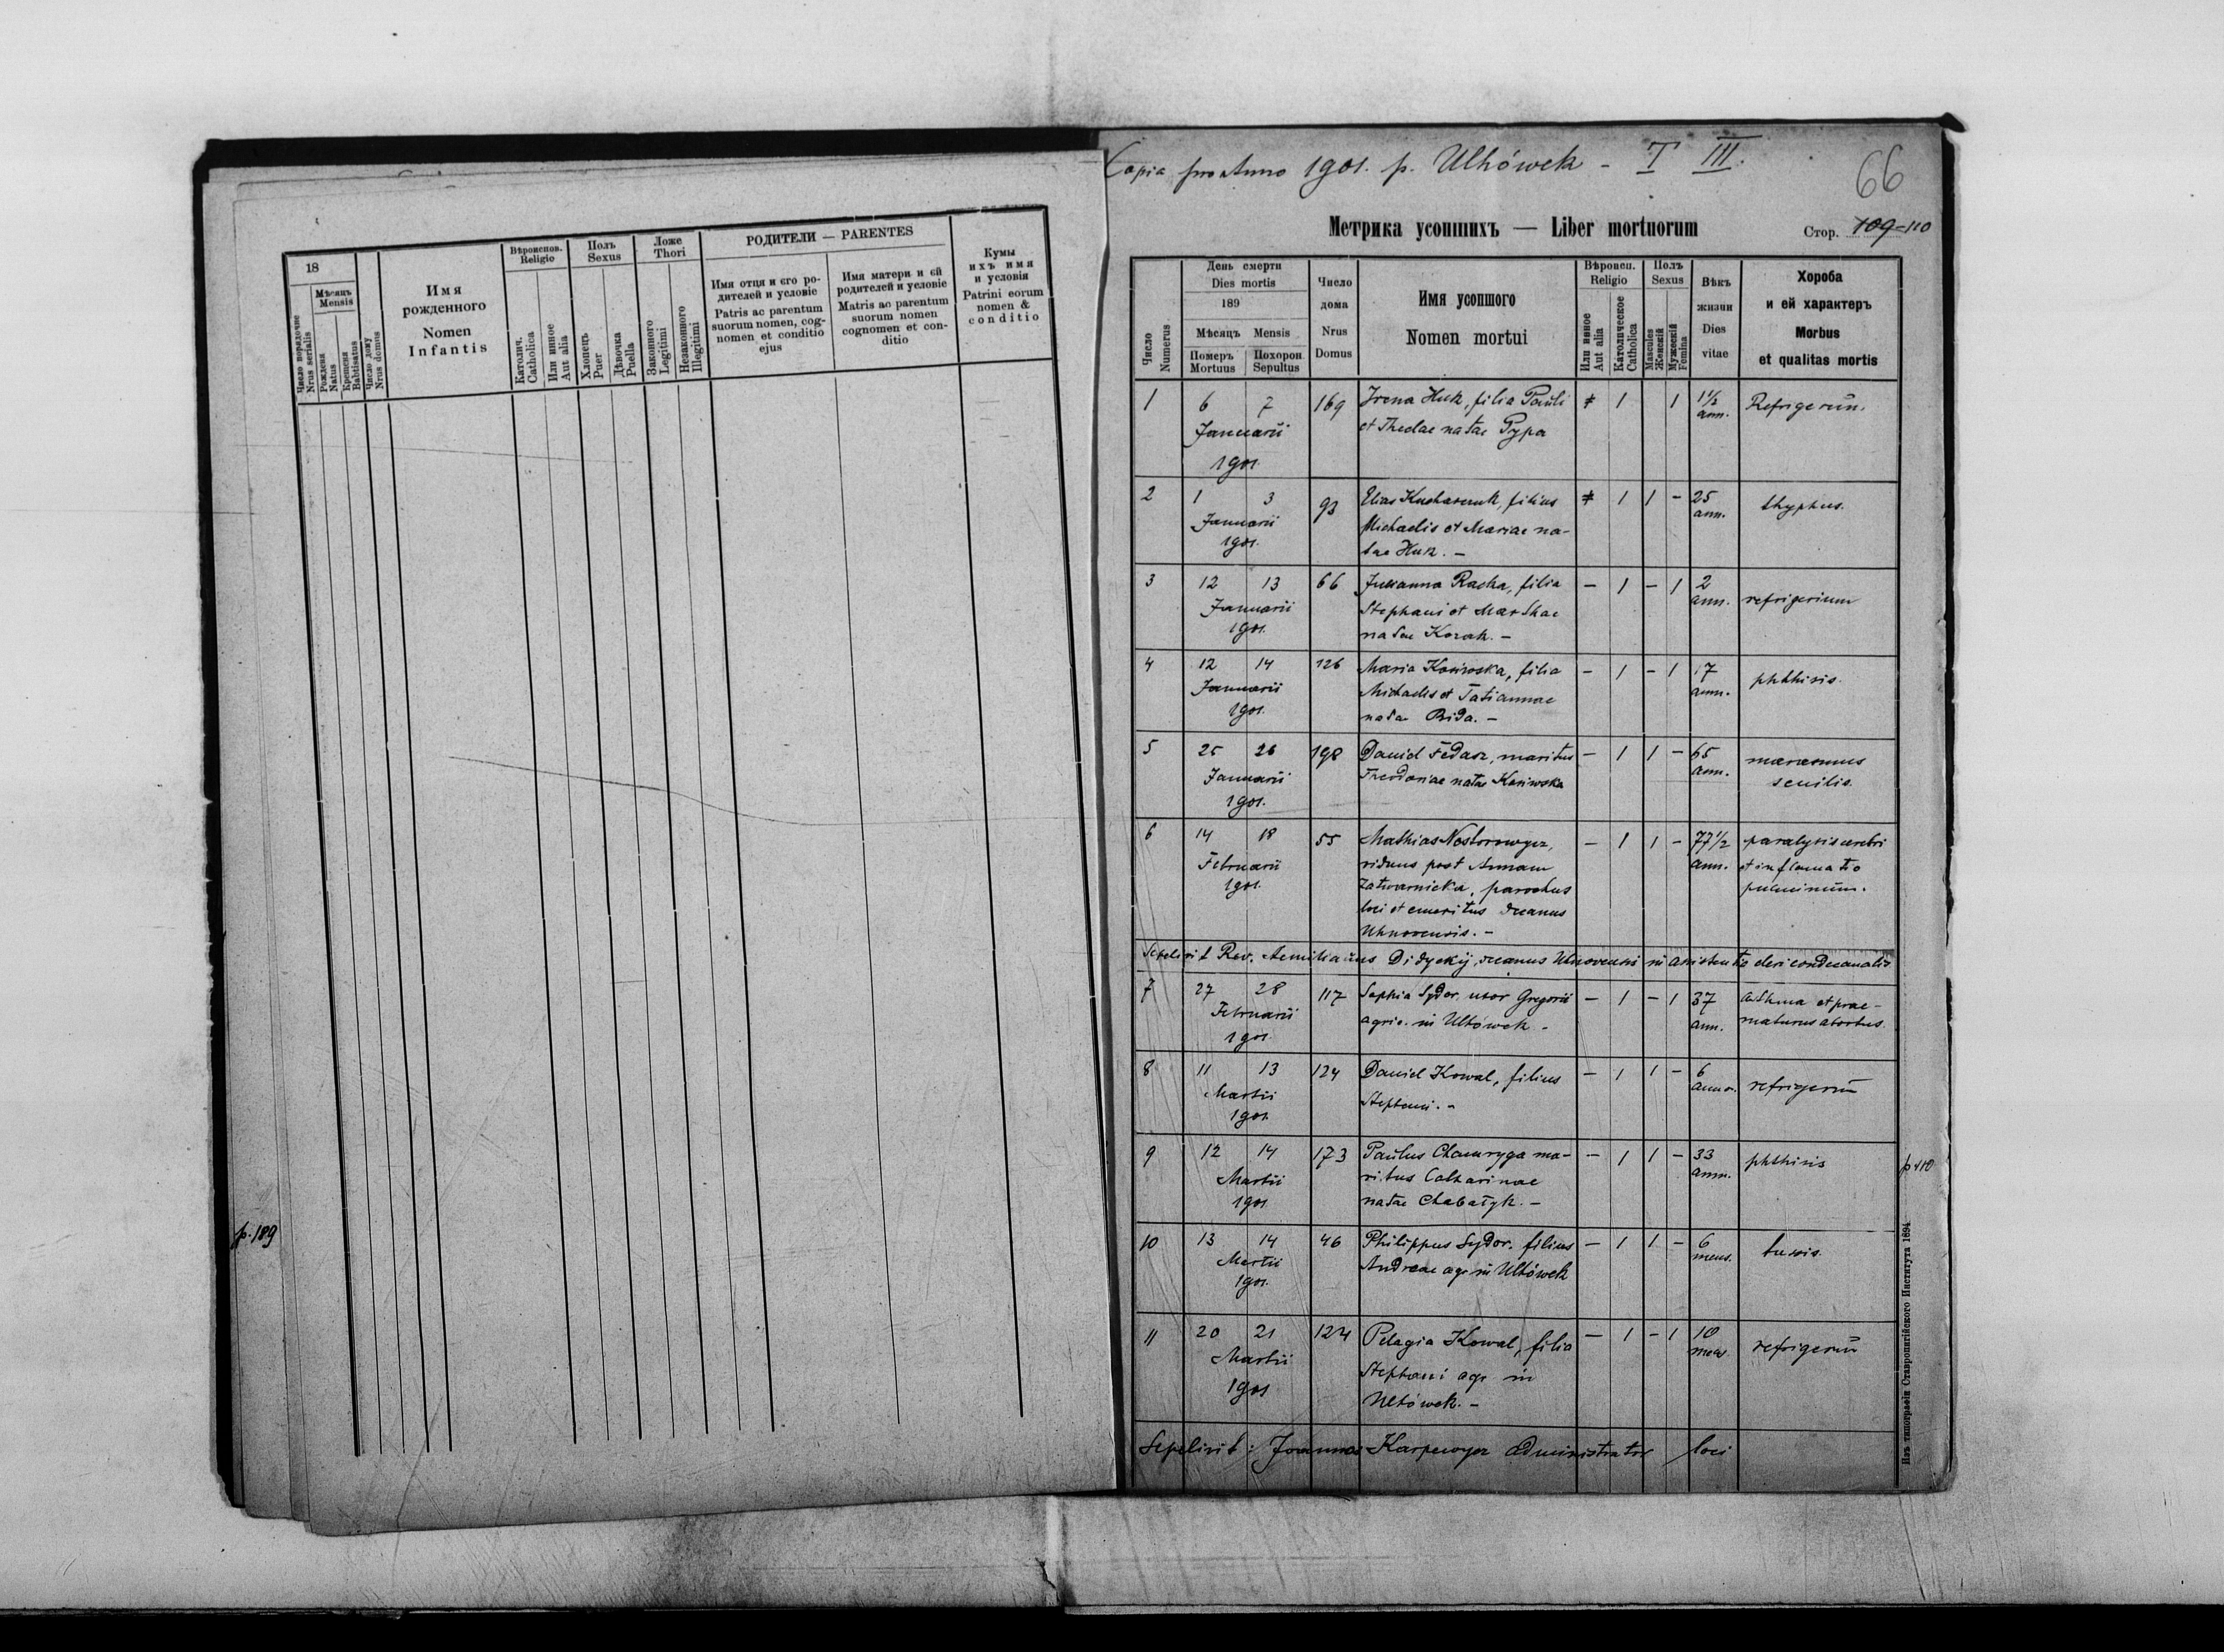 18
Число порядочне
Nrus serialis
Мѣсяцъ
Mensis
Рождєня
Natus
Крещеня
Babtisatus
Число дому
Nrus domus
Имя
рожденного
Nomen
Infantis
Вѣроиспов.
Religio
Католич.
Catholica
Или инное
Aut alia
Полъ
Sexus
Хлопецъ
Puer
Дѣвочка
Puella
Ложе
Thori
Законного
Legitimi
Незаконного
Illegitimi
РОДИТЕЛИ — PARENTES
Имя отця и єго ро-
дителей и условіє
Patris ac parentum
suorum nomen, cog-
nomen et conditio
ejus
Имя матери и єй
родителей и условіє
Matris ac parentum
suorum nomen
cognomen et con-
ditio
Кумы
ихъ имя
и условія
Patrini eorum
nomen &
conditio
p. 189
Copia pro Anno 1901. p. Uhówek - T III.
66
Метрика усопшихъ — Liber mortuorum
Стор. 109-110
Число
Numerus
День смерти
Dies mortis
189
Мѣсяцъ Mensis
Померъ
Mortuus
Похорон
Sepultus
Число
дома
Nrus
Domus
Имя усопшого
Nomen mortui
Вѣроисп.
Religio
Или инное
Aut alia
Католическое
Catholica
Полъ
Sexus
Mascules
Женскій
Мужескій
Femina
Вѣкъ
жизни
Dies
vitae
Хороба
и ей характеръ
Morbus
et qualitas mortis
1 6 7 169 Irena Huk, filia Pauli 1 1 1½ Refrigerium.
Januarii et Theclae natae Pypa ann.
1901.
2 1 3 93 Elias Kucharczuk, filius 1 1 - 25 thyphus.
Januarii Michaelis et Mariae na- ann.
1901. tae Huk. -
3 12 13 66 Julianna Racha, filia - 1 - 1 2 refrigerium
Januarii Stephani et Marthae ann.
1901. natae Kozak. -
4 12 14 126 Maria Kosiwska, filia - 1 - 1 17 phthisis.
Januarii Michaelis et Tatiannae ann.
1901. natae Bida. -
5 25 26 198 Daniel Fedasz, maritus - 1 1 - 65 marasmus
Januarii Theodoriae natae Kosiwska ann. senilis.
1901.
6 14 18 55 Mathias Nestorowycz, - 1 1 - 77½ paralysis cerebri
Februarii viduus post Annam ann. et inflamatio
1901. Zatwarnicka, parochus pulminum.
loci et emeritus decanus
Uhnoviensis. -
Sepelivit Rev. Aemilianus Didyckij, decanus Uhnoviensis in assistentia cleri condecanalis
7 27 28 117 Sophia Sydor, uxor Gregorii - 1 - 1 37 Asthma et prae-
Februarii agric. in Uhówek - ann. maturus abortus.
1901.
8 11 13 124 Daniel Kowal, filius - 1 1 - 6 refrigerium
Martii Stephani. - annor.
1901.
9 12 14 173 Paulus Chamryga ma- - 1 1 - 33 phthisis p 110
Martii ritus Catharinae ann.
1901 natae Chabatyk. -
10 13 14 46 Philippus Sydor. filius - 1 1 - 6 tussis.
Martii Andreae agr in Uhówek mens.
1901.
11 20 21 124 Pelagia Kowal, filia - 1 - 1 10 refrigerium
Martii Stephani agr in mens.
1901 Uhówek. -
Sepelivit: Joannes Karpewycz administrator loci
Изъ типографіи Ставропигійского Института 1894